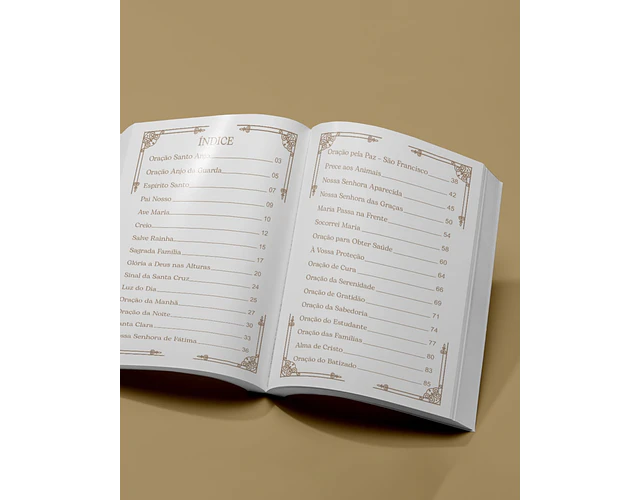 ÍNDICE
Oração Santo Anjo 03
Oração Anjo da Guarda 05
Espírito Santo 07
Pai Nosso 09
Ave Maria 10
Creio 12
Salve Rainha 15
Sagrada Família 17
Glória a Deus nas Alturas 20
Sinal da Santa Cruz 24
Luz do Dia 25
Oração da Manhã 27
Oração da Noite 30
anta Clara 33
ssa Senhora de Fátima 36
Oração pela Paz - São Francisco 38
Prece aos Animais 42
Nossa Senhora Aparecida 45
Nossa Senhora das Graças 50
Maria Passa na Frente 54
Socorrei Maria 58
Oração para Obter Saúde 60
À Vossa Proteção 64
Oração de Cura 68
Oração da Serenidade 69
Oração de Gratidão 71
Oração da Sabedoria 74
Oração do Estudante 77
Oração das Famílias 80
Alma de Cristo 83
Oração do Batizado 85